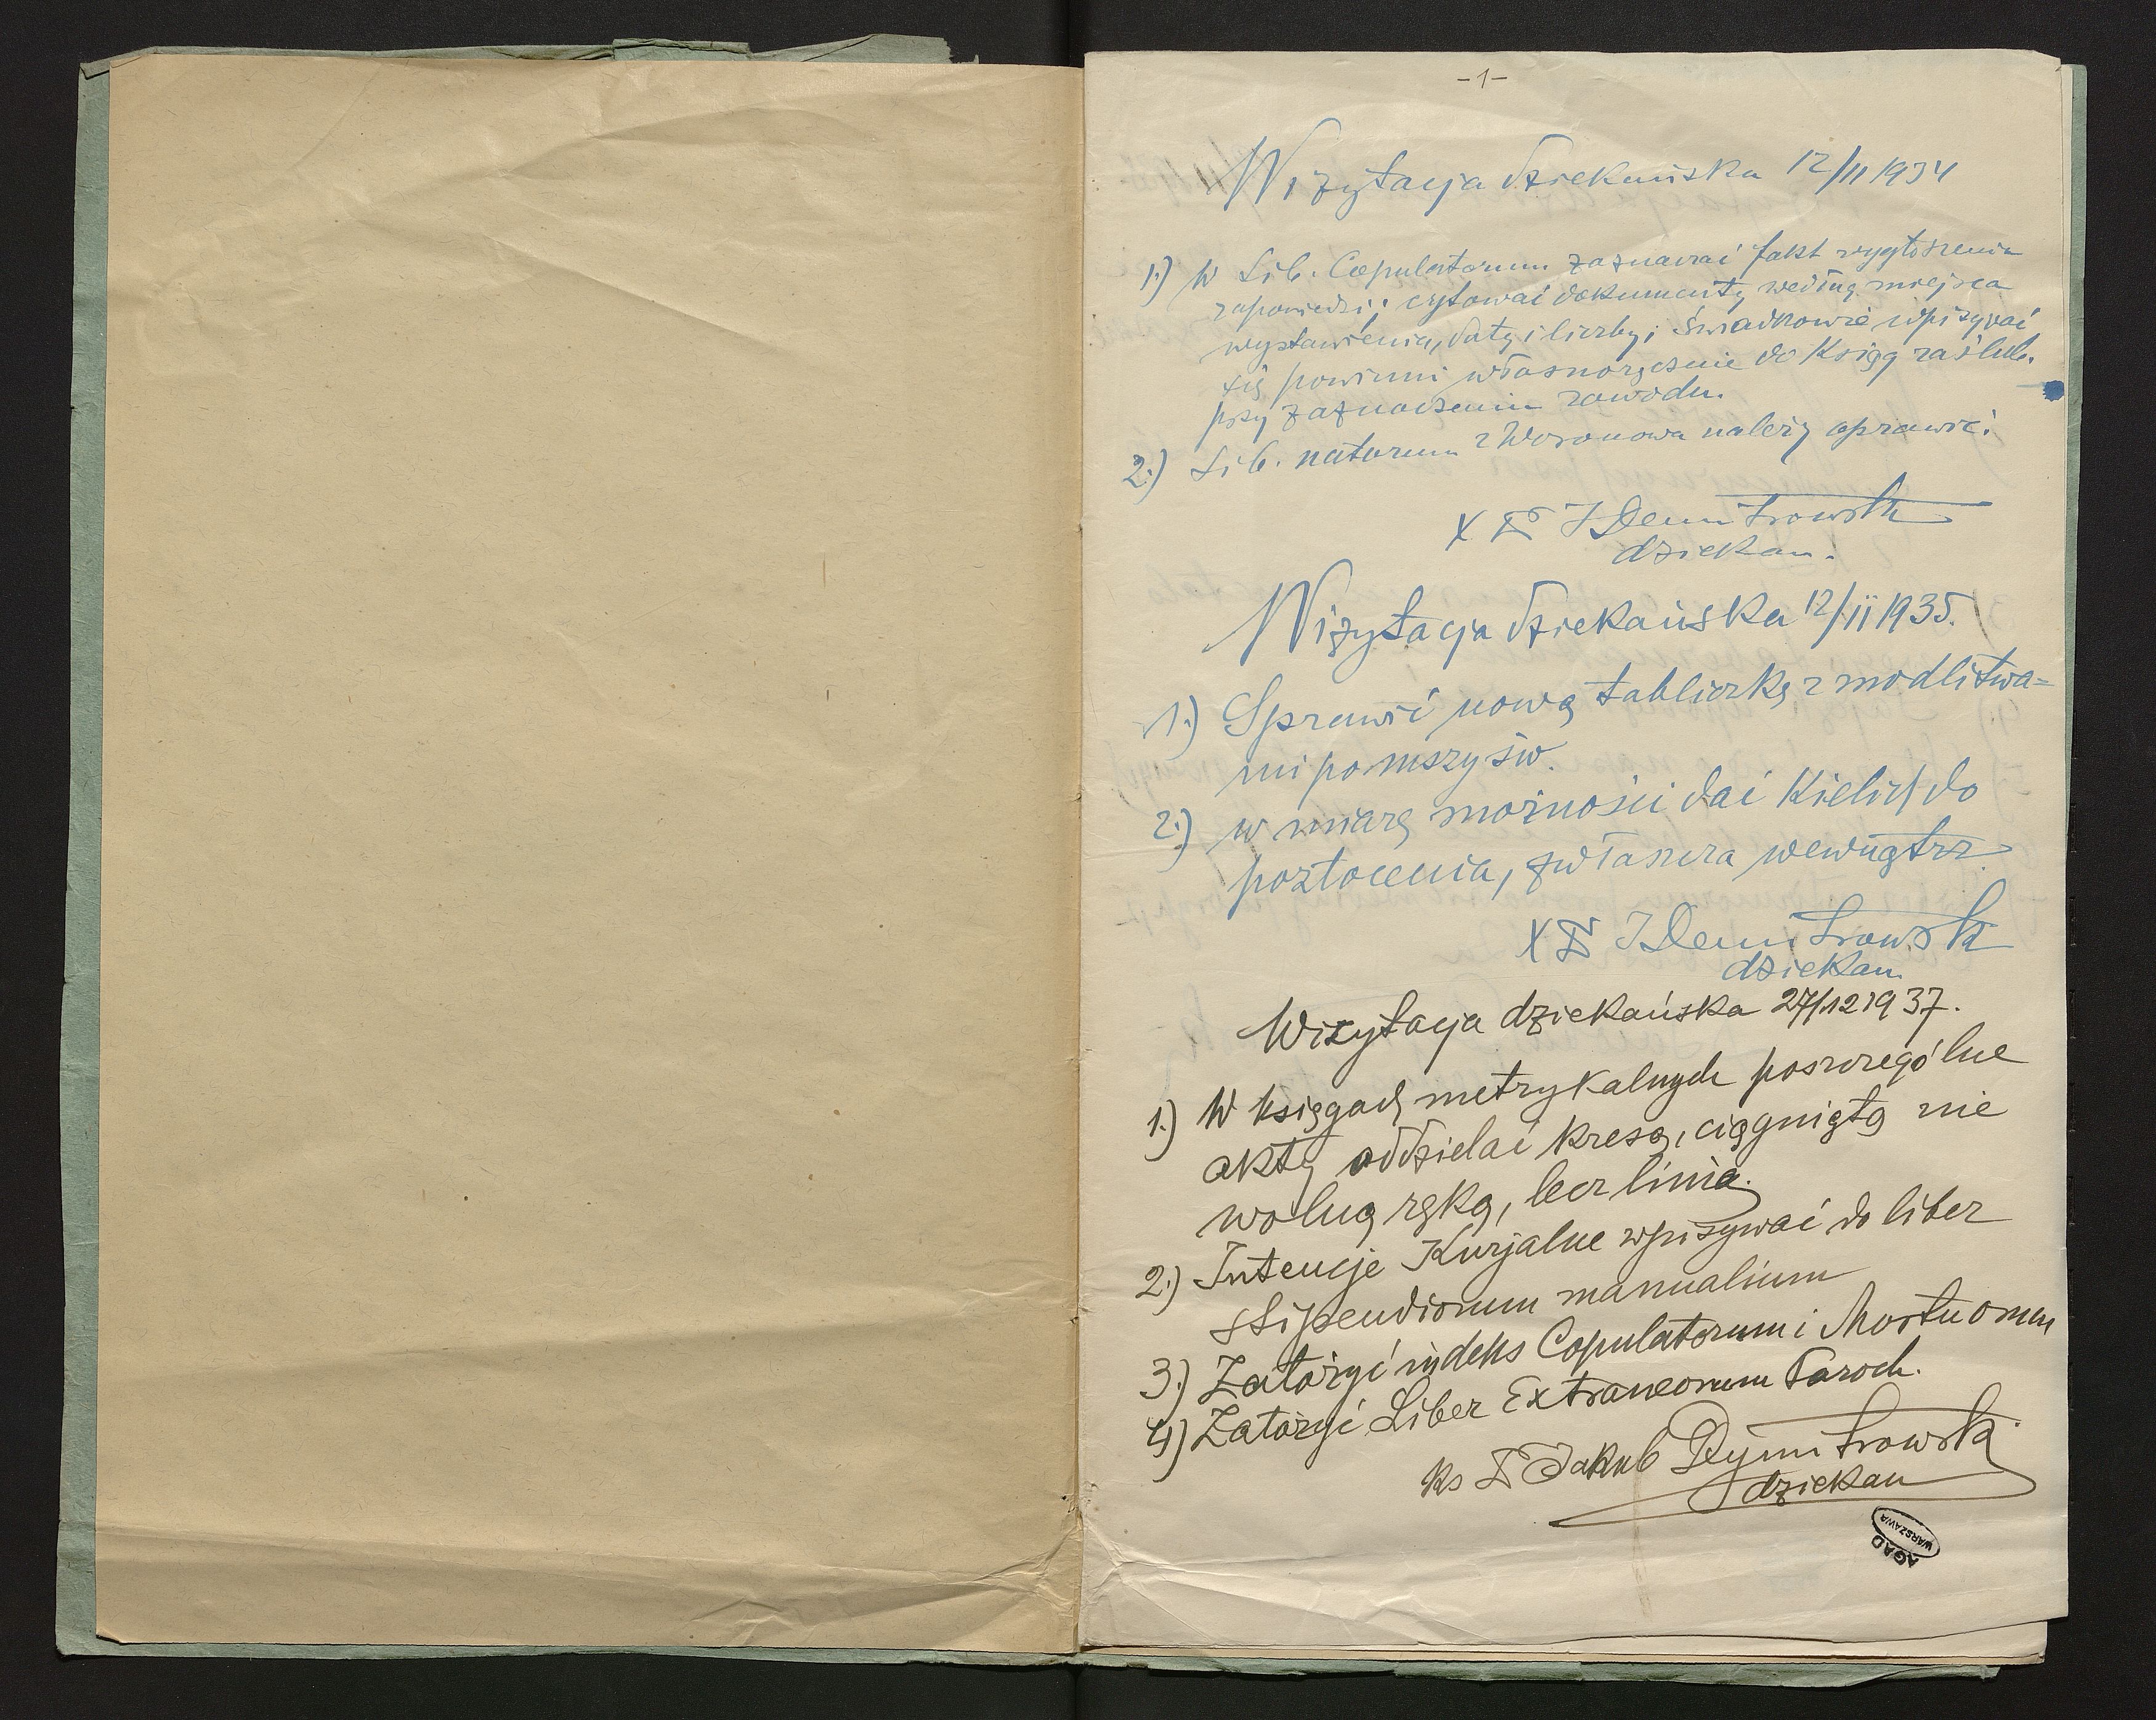 -1-
Wizytacja dziekańska 12/II 1934
1.) W Lib. Copulatorum zaznaczać fakt wygłoszenia
zapowiedzi; cytować dokumenty według miejsca
wystawienia, daty i liczby; świadkowie wpisywać
się powinni własnoręcznie do Ksiąg zaślub.
przy zaznaczeniu zawodu.
2.) Lib. natorum z Woronowa należy oprawić.
X J Demitrowski
dziekan.
Wizytacja dziekańska 12/II 1935.
1.) Sprawić nową tabliczkę z modlitwa=
mi po mszy św.
2.) w miarę możności dać Kielich do
pozłocenia, zwłaszcza wewnątrz
X J Demitrowski
dziekan
Wizytacja dziekańska 27/12 1937.
1.) W księgach metrykalnych poszczególne
akty oddzielać kresą, ciągniętą nie
wolną ręką, lecz linią.
2.) Intencje Kurjalne wpisywać do liber
stipendiorum manualium
3.) Założyć indeks Copulatorum i Mortuorum
4.) Założyć Liber Extraneorum Paroch.
Ks Jakub Dymitrowski
dziekan
AGAD
WARSZAWA